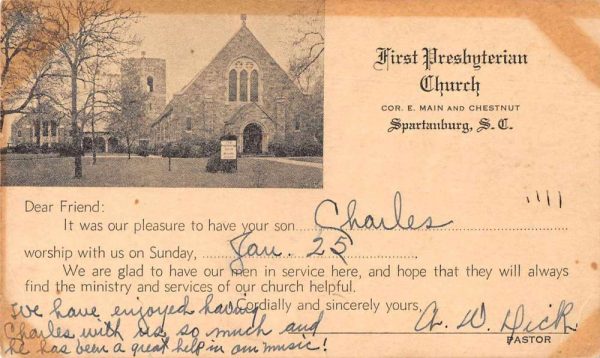 First Presbyterian
Church
COR. E. MAIN AND CHESTNUT
Spartanburg, S. C.
Dear Friend:
It was our pleasure to have your son Charles
worship with us on Sunday, Jan. 25
We are glad to have our men in service here, and hope that they will always
find the ministry and services of our church helpful.
Cordially and sincerely yours,
W. Dick
PASTOR
We have enjoyed having
Charles with us, so much and
he has been a great help in our music!